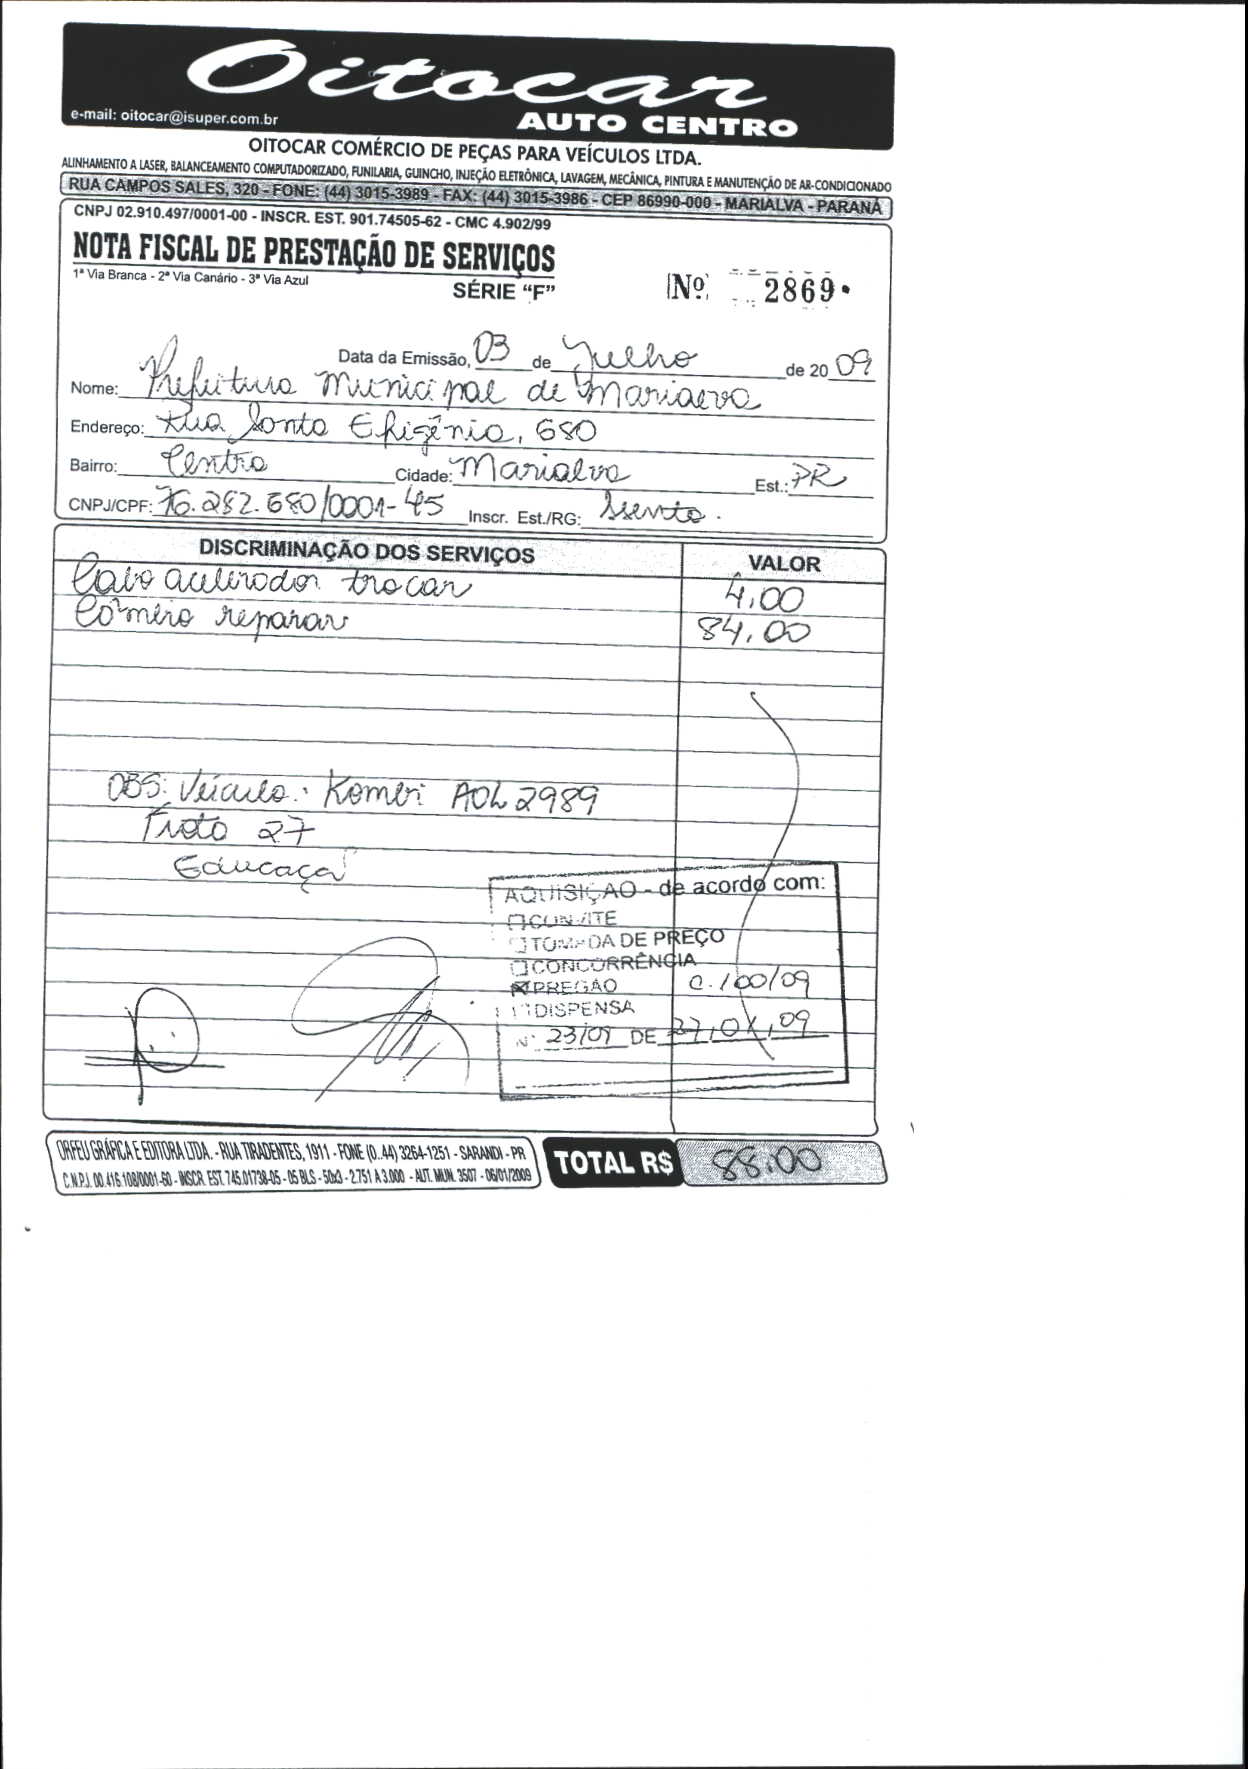 Oitocar
AUTO CENTRO
e-mail: oitocar@isuper.com.br
OITOCAR COMÉRCIO DE PEÇAS PARA VEÍCULOS LTDA.
ALINHAMENTO A LASER, BALANCEAMENTO COMPUTADORIZADO, FUNILARIA, GUINCHO, INJEÇÃO ELETRÔNICA, LAVAGEM, MECÂNICA, PINTURA E MANUTENÇÃO DE AR-CONDICIONADO
RUA CAMPOS SALES, 320 - FONE: (44) 3015-3989 - FAX: (44) 3015-3986 - CEP 86990-000 - MARIALVA - PARANÁ
CNPJ 02.910.497/0001-00 - INSCR. EST. 901.74505-62 - CMC 4.902/99
NOTA FISCAL DE PRESTAÇÃO DE SERVIÇOS
1ª Via Branca - 2ª Via Canário - 3ª Via Azul
SÉRIE “F”
Nº 2869
Data da Emissão, 03 de Julho de 2009
Nome: Prefeitura Municipal de Marialva
Endereço: Rua Santa Efigênia, 680
Bairro: Centro Cidade: Marialva Est.: PR
CNPJ/CPF: 76.282.680/0001-45 Inscr. Est./RG: Isento.
DISCRIMINAÇÃO DOS SERVIÇOS VALOR
Cabo acelerador trocar 4,00
reparar 84,00
OBS: Veículo: Kombi AOL 2989
Frota 27
Educaçã
AQUISIÇÃO - de acordo com:
CONVITE
TOMADA DE PREÇO
CONCORRÊNCIA
PREGÃO C. 100/09
DISPENSA
Nº 23/09 DE 09
ORFEU GRÁFICA E EDITORA LTDA. - RUA TIRADENTES, 1911 - FONE (0..44) 3264-1251 - SARANDI - PR
C.N.P.J. 00.416.108/0001-60 - INSCR. EST. 745.01738-05 - 05 BLS - 50x3 - 2.751 A 3.000 - AUT. MUN. 3507 - 06/01/2009
TOTAL R$ 88,00